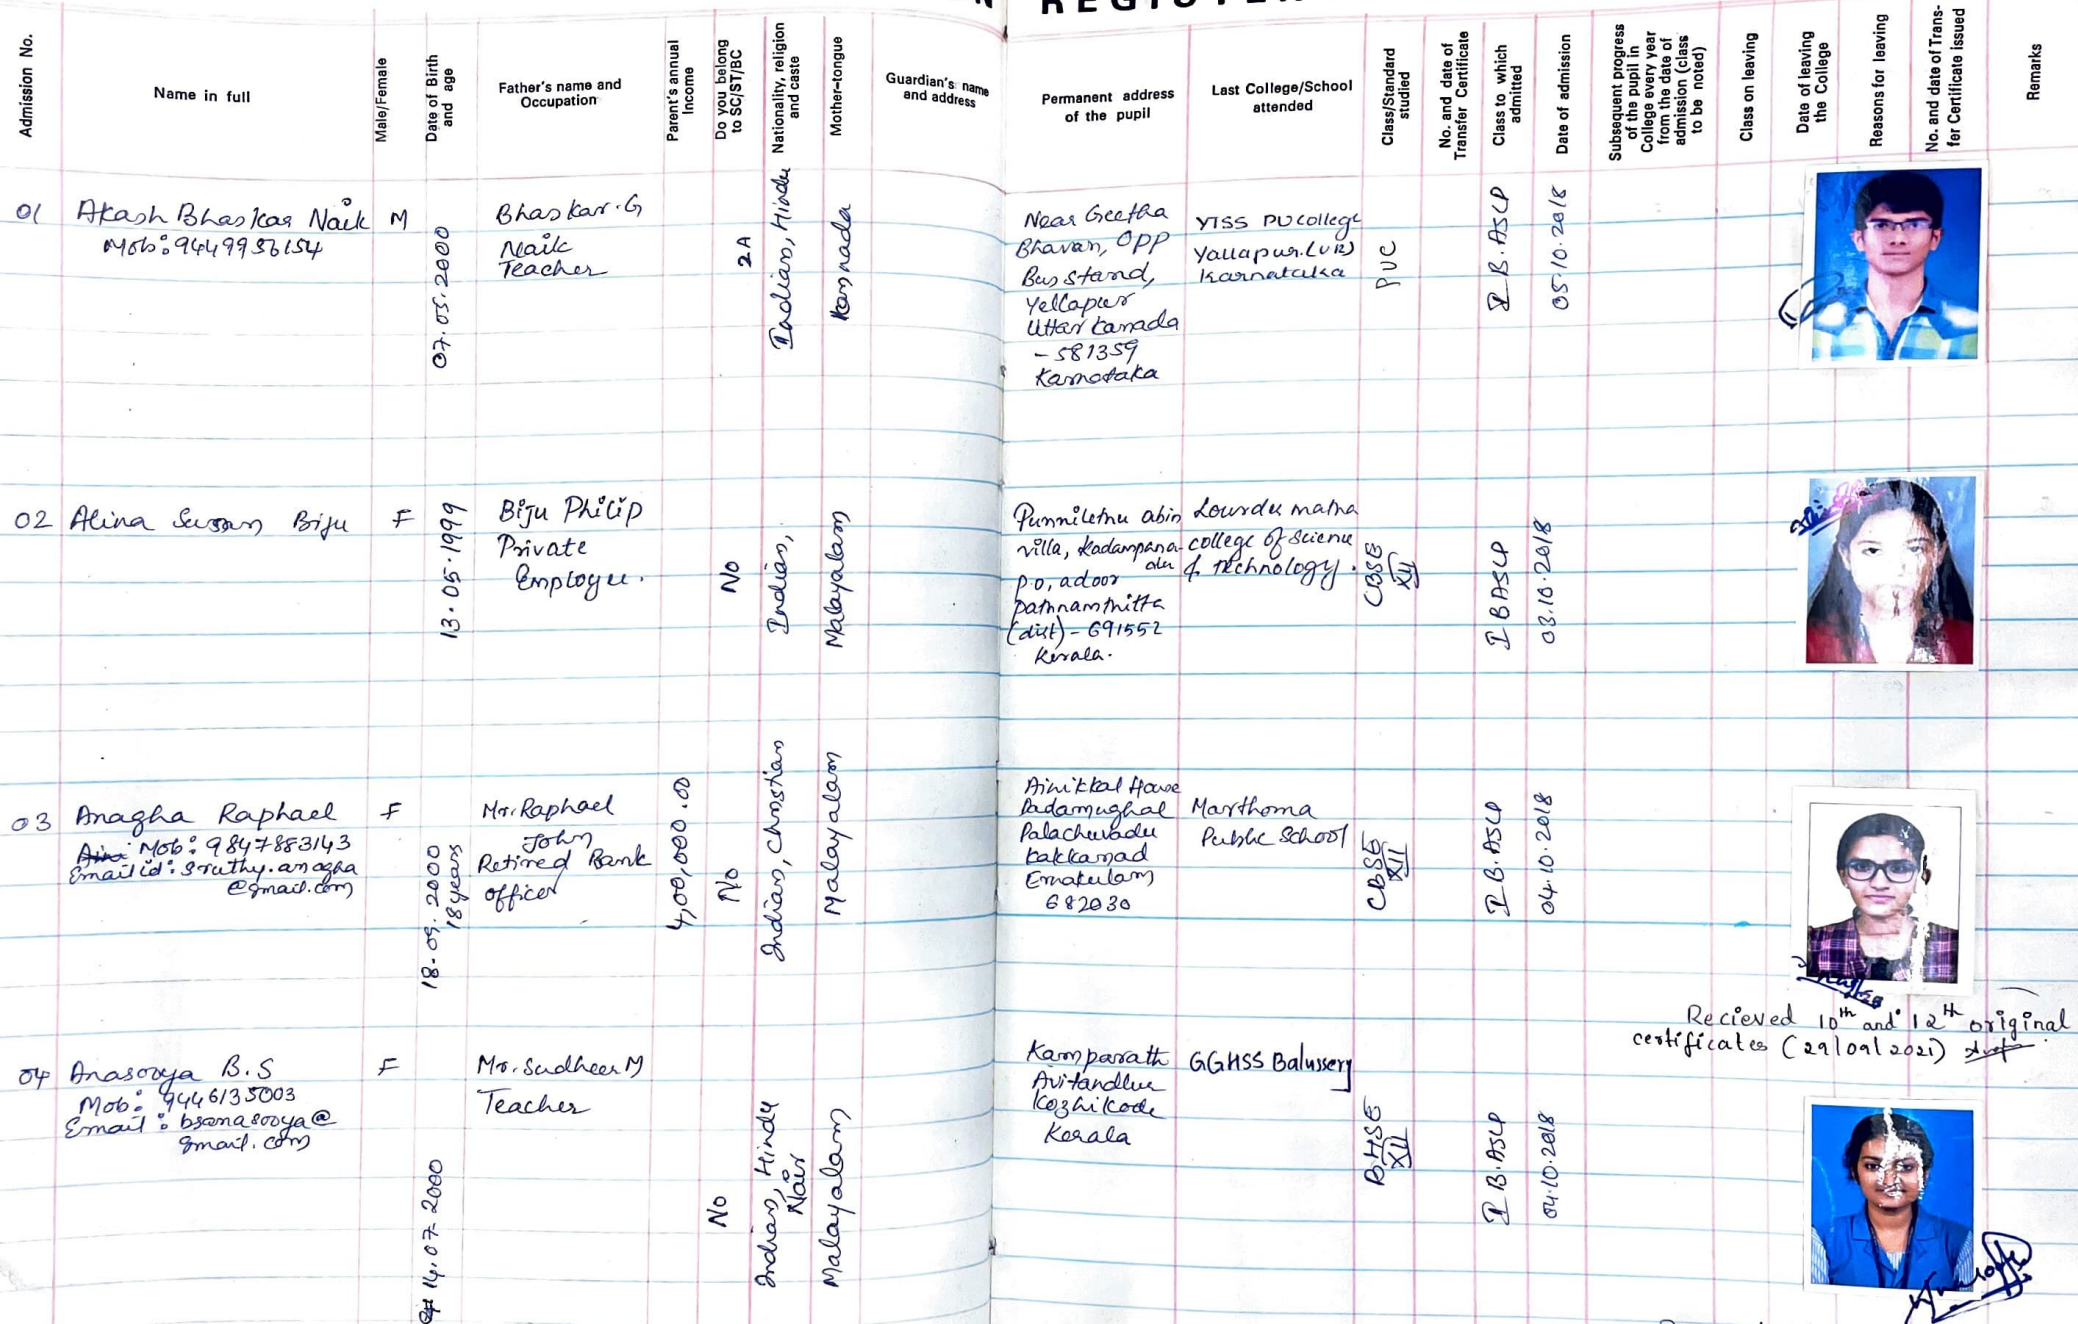 REGISTER
Admission No.
Name in full
Male/Female
Date of Birth
and age
Father's name and
Occupation
Parent's annual
Income
Do you belong
to SC/ST/BC
Nationality, religion
and caste
Mother-tongue
Guardian's name
and address
Permanent address
of the pupil
Last College/School
attended
Class/Standard
studied
No. and date of
Transfer Certificate
Class to which
admitted
Date of admission
Subsequent progress
of the pupil in
College every year
from the date of
admission (class
to be noted)
Class on leaving
Date of leaving
the College
Reasons for leaving
No. and date of Trans-
fer Certificate issued
Remarks
01
Akash Bhaskar Naik
Mob:
M
07.05.2000
Bhaskar.G
Naik
Teacher
2A
Indian, Hindu
Kannada
Near Geetha
Bhavan, Opp
Bus stand,
Yellapur
Uttar Kanada
- 581359
Karnataka
YTSS PU College
Yallapur.
Karnataka
PUC
I B.ASLP
05.10.2018
02
Alina Susan Biju
F
13.05.1999
Biju Philip
Private
Employee.
No
Indian,
Malayalam
abin
villa, Kadampana-
P.O, adoor
pathnamthitta
(dist) - 691552
Kerala.
Lourdu matha
college of Science
& technology.
CBSE
XII
I BASLP
03.10.2018
03
Anagha Raphael
Mob: 9847883143
Email id: sruthy.anagha
@gmail.com
F
18.09.2000
18 years
Mr. Raphael
John
Retired Bank
officer
4,00,000.00
No
Indian, Christian
Malayalam
Ainikkal House
Padamughal
Palachuvadu
Kakkanad
Ernakulam
682030
Marthoma
Public School
CBSE
XII
I B.ASLP
04.10.2018
Recieved 10th and 12th original
certificates (29/09/2021)
04
Anasooya B.S
Mob: 9446135003
Email: bsanasooya@
gmail.com
F
14.07.2000
Mr. Sudheer M
Teacher
No
Indian, Hindu
Nair
Malayalam
Kamparath
Kozhikode
Kerala
GGHSS Balussery
XII
I B.ASLP
04.10.2018